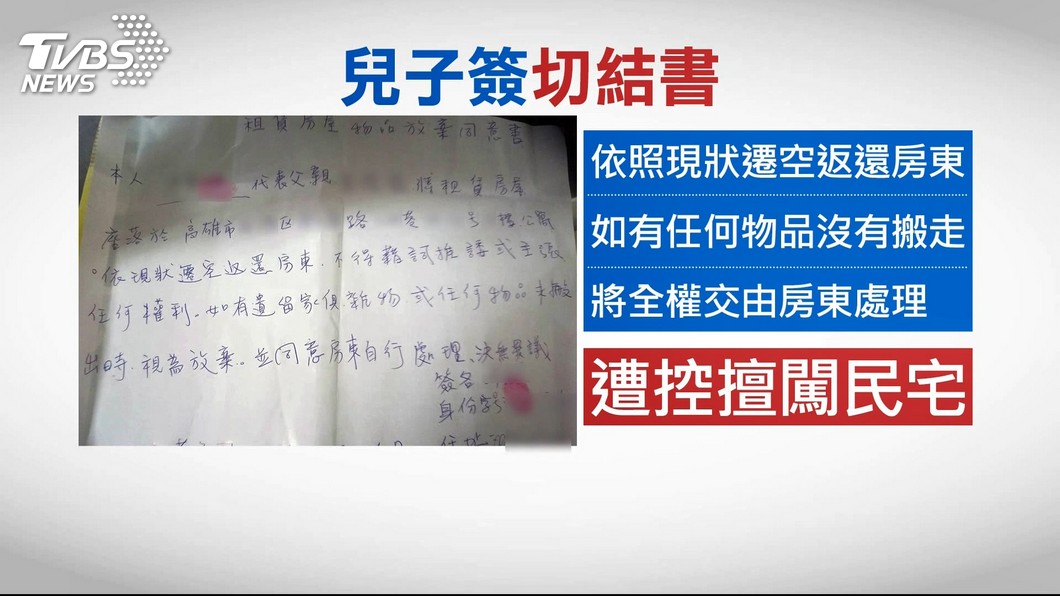 TVBS
NEWS
兒子簽切結書
租賃房屋物品放棄同意書
本人 代表父親 將租賃房屋
座落於高雄市 区 路 巷 号 樓公寓
依現狀遷空返還房東.不得藉試推諉或主張
任何權利.如有遺留家俱.雜物或任何物品未搬
出時.視為放棄。並同意房東自行處理、決無異議
簽名
身份字号
依照現狀遷空返還房東
如有任何物品沒有搬走
將全權交由房東處理
遭控擅闖民宅